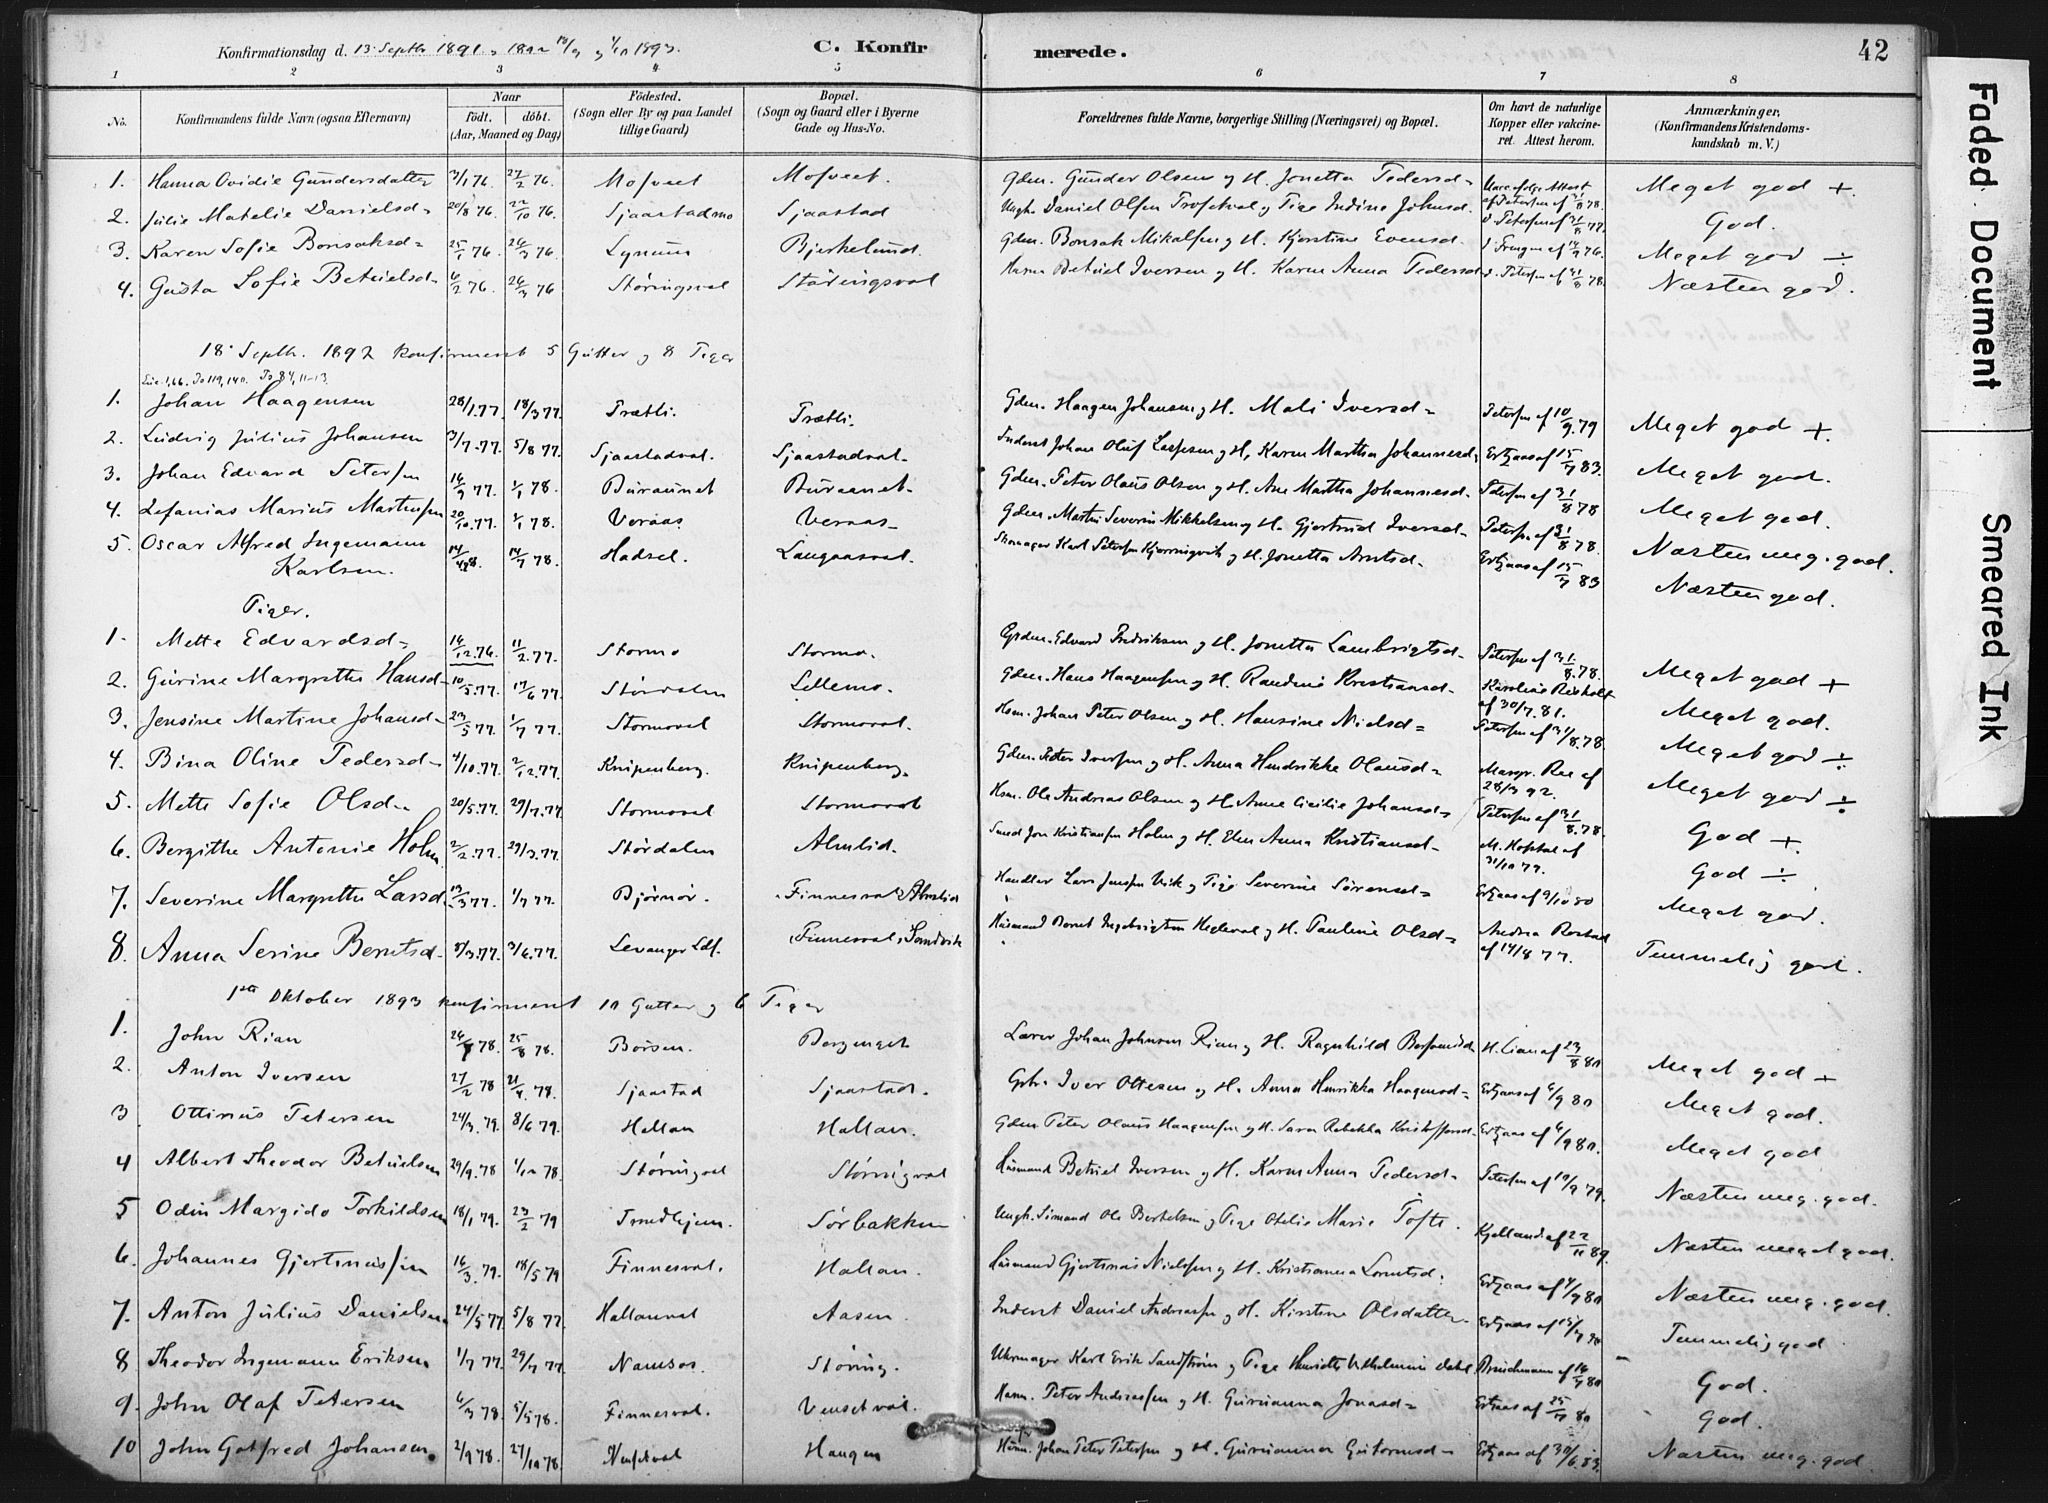 Konfirmationsdag d. 13 Septb 1891, 1892 18/9 og 1/10 1893.
C. Konfirmerede.
42
1 2 3 4 5 6 7 8
No.
Konfirmandens fulde Navn (ogsaa Efternavn)
Naar
Födt. döbt.
(Aar, Maaned og Dag)
Födested.
(Sogn eller By og paa Landet tillige Gaard)
Bopæl.
(Sogn og Gaard eller i Byerne Gade og Hus-No.
Forældrenes fulde Navne, borgerlige Stilling (Næringsvei) og Bopæl.
Om havt de naturlige Kopper eller vakcineret. Attest herom.
Anmærkninger,
(Konfirmandens Kristendomskundskab m. V.)
1. Hanna Ovidie Gundersdatter 3/1 76. 27/2 76. Mosveet Mosveet. Gdm. Gunder Olsen og H. Jonetta Pedersd= Meget god +
2. Julie Matelie Danielsd= 20/8 76. 22/10 76. Sjaastadmo Sjaastad Ungk. Daniel Olsen og Pige Indine Johnsd. d. Petersen af 31/8 77. God.
3. Karen Sofie Bonsaksd= 25/1 76 26/3 76 Lynum Bjerkelund. Gdm. Bonsak Mikalsen og H. Kjerstine Evensd. Meget god ÷
4. Gusta Sofie Betuelsd= 6/2 76. 26/3 76 Støringsval Støringsval Husm Betuel Iversen og H. Karen Anna Pedersd d. Petersen af 31/8 78. Næsten god.
18 Septb. 1892 konfirmeret 5 Gutter og 8 Piger
Luc. 1,66. Ps 119, 140. Ps 84, 11-13.
1. Johan Haagensen 28/1.77. 18/3 77. Prætli. Prætli. Gdm. Haagen Johansen og H. Mali Iversd= Petersen af 10/9.79 Meget god +.
2. Ludvig Julius Johansen 3/7.77. 5/8 77. Sjaastadval. Sjaastadval. Inderst Johan Oluf Laspesen og H. Karen Martha Johannesd. Ertzaas af 15/7 83. Meget god.
3. Johan Edvard Petersen 16/9 77. 1/1 78. Buraunet Buraunet. Gdm. Peter Olaus Olsen og H. Ane Martha Johannesd. Petersen af 31/8 78 Meget god.
4. Zefanias Marius Martinsen 20/10.77. 1/1 78. Veraas Veraas Gdm. Martin Severin Mikkelsen og H. Gjertrud Iversd= Petersen af 31/8 78. Næsten meg. god.
5. Oscar Alfred Ingemann Karlsen. 14/7 78. Hadsel. Langaasval. Skomager Karl Petersen Kjerringvik og H. Jonetta Arntsd= Ertzaas af 15/7 83 Næsten god.
Piger.
1. Mette Edvardsd= 14/12.76. 11/2.77. Stormo Stormo. Grdm. Edvard Fredriksen og H. Jonetta Lambrigtsd= Petersen af 31/8.78. Meget god +
2. Gurine Margrethe Hansd= 10/5.77. 17/6 77. Stördalen Lillemo. Gdm. Hans Haagensen og H. Randine Kristiansd= Karoline Reisholt af 30/7.81. Meget god.
3. Jensine Martine Johansd= 23/5 77. 1/7 77. Stormoval Stormoval. Hsm. Johan Peter Olsen og H. Hansine Nielsd= Petersen af 31/8.78. Meget god ÷
4. Bina Oline Pedersd= 4/10.77. 2/12.77. Knipenberg. Knipenberg. Gdm. Peder Iversen og H. Anna Hendrikke Olausd= Margr. Ree af 28/3 92. Meget god ÷
5. Mette Sofie Olsd= 20/5.77. 29/7.77. Stormoval Stormoval Hsm. Ole Andreas Olsen og H. Anne Cicilie Johansd= Petersen af 31/8.78. God +.
6. Bergithe Antonie Holm 2/2.77. 29/3.77. Stördalen Almlid. Smed Jon Kristiansen Holm og H. Elen Anna Kristiansd= M. Hoptal af 31/10 77. God ÷
7. Severine Margrethe Larsd. 13/3 77. 1/7 77. Bjørnør. Finnesval, Almlid Handler Lars Jensen Vik og Pige Severine Sörensd= Ertzaas af 9/10 80 Meget god.
8. Anna Serine Berntsd. 5/3.77. 3/6.77. Levanger Ldf. Finnesval, Sandvik Husmand Bernt Ingebrigtsen Hegleval og H. Pauline Olsd= Andrea Rostad af 14/8 77. Temmelig god.
1ste Oktober 1893 konfirmeret 10 Gutter og 6 Piger
1. John Rian 25/8 78. Börsen. Bergenget Lærer Johan Johnsen Rian og H. Ragnhild H. Lian af 23/8 80 Meget god +
2. Anton Iversen 27/2 78 21/4.78. Sjaastad Sjaastad. Gbr. Iver Ottesen og H. Anna Henrikka Haagensd= Ertzaas af 6/9 80 Meget god.
3 Ottinius Petersen 24/3.79. 8/6 79. Hallan Hallan. Gdm. Peter Olaus Haagensen og H. Sara Rebekka Kristoffersd= Ertzaas af 6/9 80. Meget god
4 Albert Theodor Betuelsen 29/9.78 1/12 78. Størringval Størringval Husmand Betuel Iversen og H. Karen Anna Pedersd= Petersen af 10/9 79. Næsten meg. god.
5 Odin Margido Torkildsen 18/1 79. 23/2 79 Trondhjem. Sørbakken Ungk. Simand Ole Berthelsen og Pige Otelie Marie Tofte. Kjelland af 22/11 89. Næsten meget god.
6. Johannes Gjertinussen 16/3.79. 18/5 79 Finnesval. Hallan. Husmand Gjertinus Nielssen og H. Kristianna Lorntsd. Ertzaas af 4/9 80 Næsten meg. god.
7. Anton Julius Danielsen 24/5 77 5/8 77. Hallanval Aasen. Inderst Daniel Andreassen og H. Kirstine Olsdatter. Ertzaas af Temmelig god
8 Theodor Ingemann Eriksen 1/7 77. 29/7 77. Namsos. Støring. Uhrmager Karl Erik Sandström og Pige Henriette Vilhelmine Dahl God.
9. John Olaf Petersen 6/3 78. 5/5 78. Finnesval. Vensetval. Husm. Peter Andreassen og H. Gurianna Jonasd= Ertzaas af God.
10 John Gotfred Johansen. 2/9 78. 27/10 78 Hangen Husm. Johan Peter Petersen og H. Gurianna Gutormsd= Ertzaas af 30/6.83. Næsten meg. god.
Faded Document
Smeared Ink